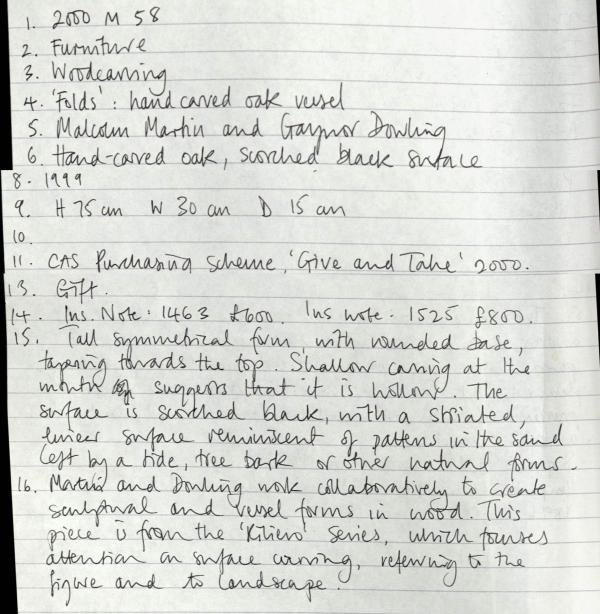 1. 2000 M 58
2. Furniture
3. Woodcarving
4. 'Folds': hand carved oak vessel
5. Malcolm Martin and Gaynor Dowling
6. Hand-carved oak, scorched black surface
8. 1999
9. H 75 cm W 30 cm D 15 cm
10.
11. CAS Purchasing Scheme, 'Give and Take' 2000.
13. Gift.
14. Ins. Note: 1463 £600. Ins note: 1525 £800.
15. Tall symmetrical form, with rounded base,
tapering towards the top. Shallow carving at the
mouth suggests that it is hollow. The
surface is scorched black, with a striated,
linear surface reminiscent of pattens in the sand
left by a tide, tree bark or other natural forms.
16. Martin and Dowling work collaboratively to create
sculptural and vessel forms in wood. This
piece is from the ' ' Series, which focuses
attention on surface carving, referring to the
figure and to landscape.